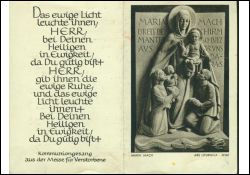 Das ewige Licht
leuchte ihnen,
HERR,
bei Deinen
Heiligen
in Ewigkeit,
da Du gütig bist+
HERR,
gib ihnen die
ewige Ruhe,
und das ewige
Licht leuchte
ihnen+
Bei Deinen
Heiligen
in Ewigkeit,
da Du gütig bist+
Kommuniongesang
aus der Messe für Verstorbene
MARIA MACH
BREIT DEN
SCHIRM
MANTEL
AUS
UNS
MARIA MACH
ARS LITURGICA